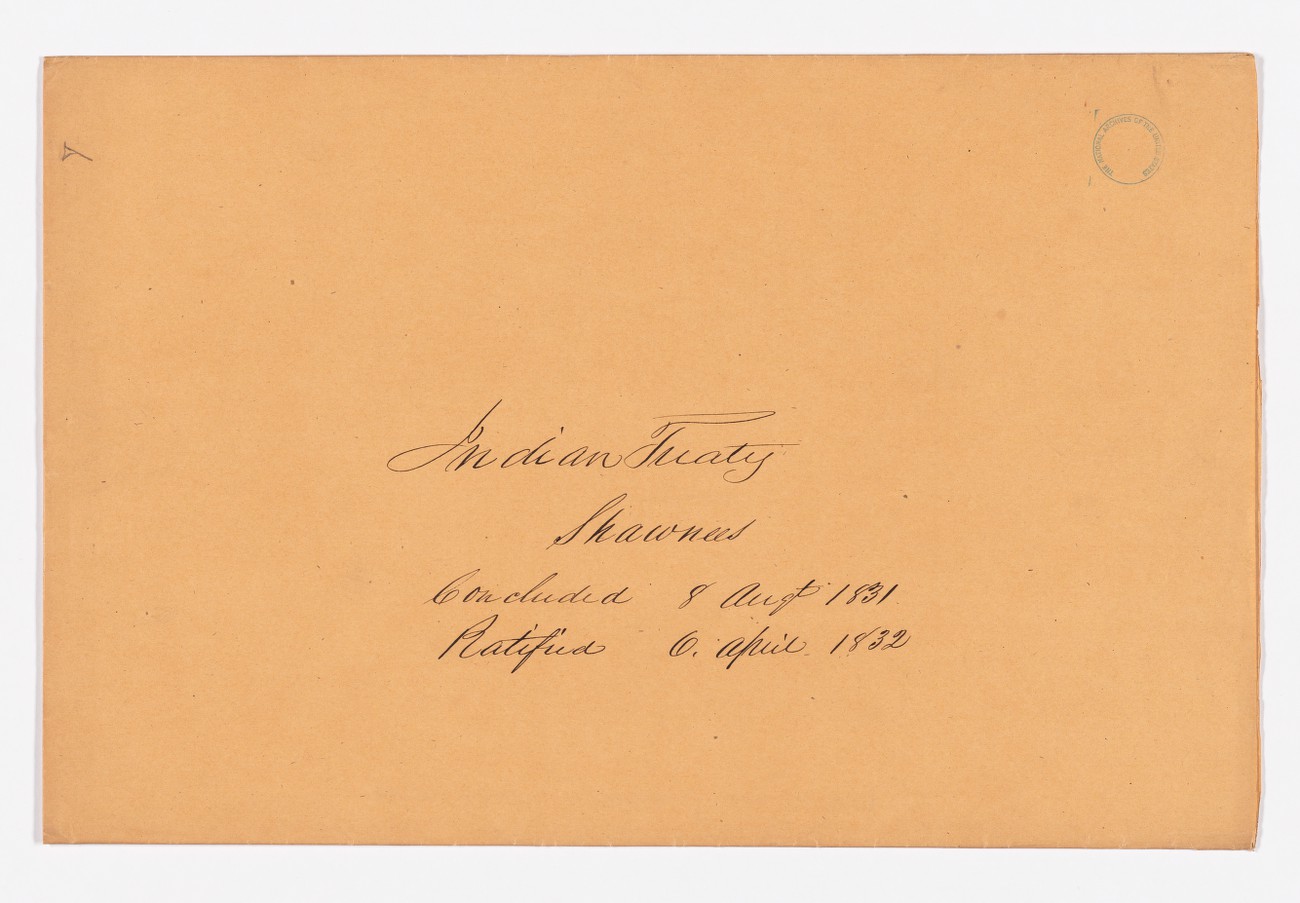 THE NATIONAL ARCHIVES OF THE UNITED STATES
Indian Treaty
Shawnees
Concluded 8 Augt 1831
Ratified 6. April 1832